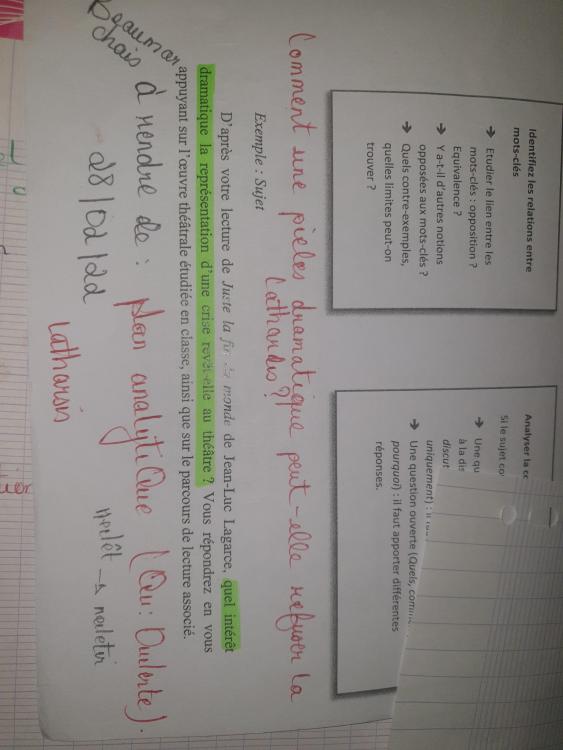 Identifiez les relations entre
mots-clés
➔ Etudier le lien entre les
mots-clés : opposition ?
Equivalence ?
➔ Y a-t-il d'autres notions
opposées aux mots-clés ?
➔ Quels contre-exemples,
quelles limites peut-on
trouver ?
Analyser la
Si le sujet
➔ Une
à la
discut
uniquement) : il
➔ Une question ouverte (Quels,
pourquoi) : il faut apporter différentes
réponses.
Comment une pièces dramatique peut-elle refuser la
Catharsis ?
Exemple : Sujet
D'après votre lecture de Juste la fin du monde de Jean-Luc Lagarce, quel intérêt
dramatique la représentation d'une crise revêt-elle au théâtre ? Vous répondrez en vous
appuyant sur l'œuvre théâtrale étudiée en classe, ainsi que sur le parcours de lecture associé.
Beaumar
chais
à rendre de : plan analytique
28/02/22
Catharsis